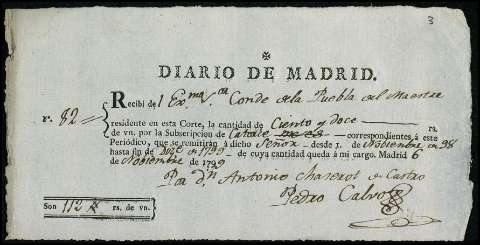 3
DIARIO DE MADRID.
Nº. 82 Recibi del Exmo. Conde de la Puebla del Maestre
residente en esta Corte, la cantidad de Ciento y doce rs.
de vn. por la Subscripcion de Catorce correspondientes á este
Periódico, que se remitirán á dicho Señor desde 1. de Noviembre en 98
hasta fin de Dize. en 1799 de cuya cantidad queda á mi cargo. Madrid 6
de Noviembre de 1799
Por Dn. Antonio de Castro
Pedro Calvo
Son 112 rs. de vn.